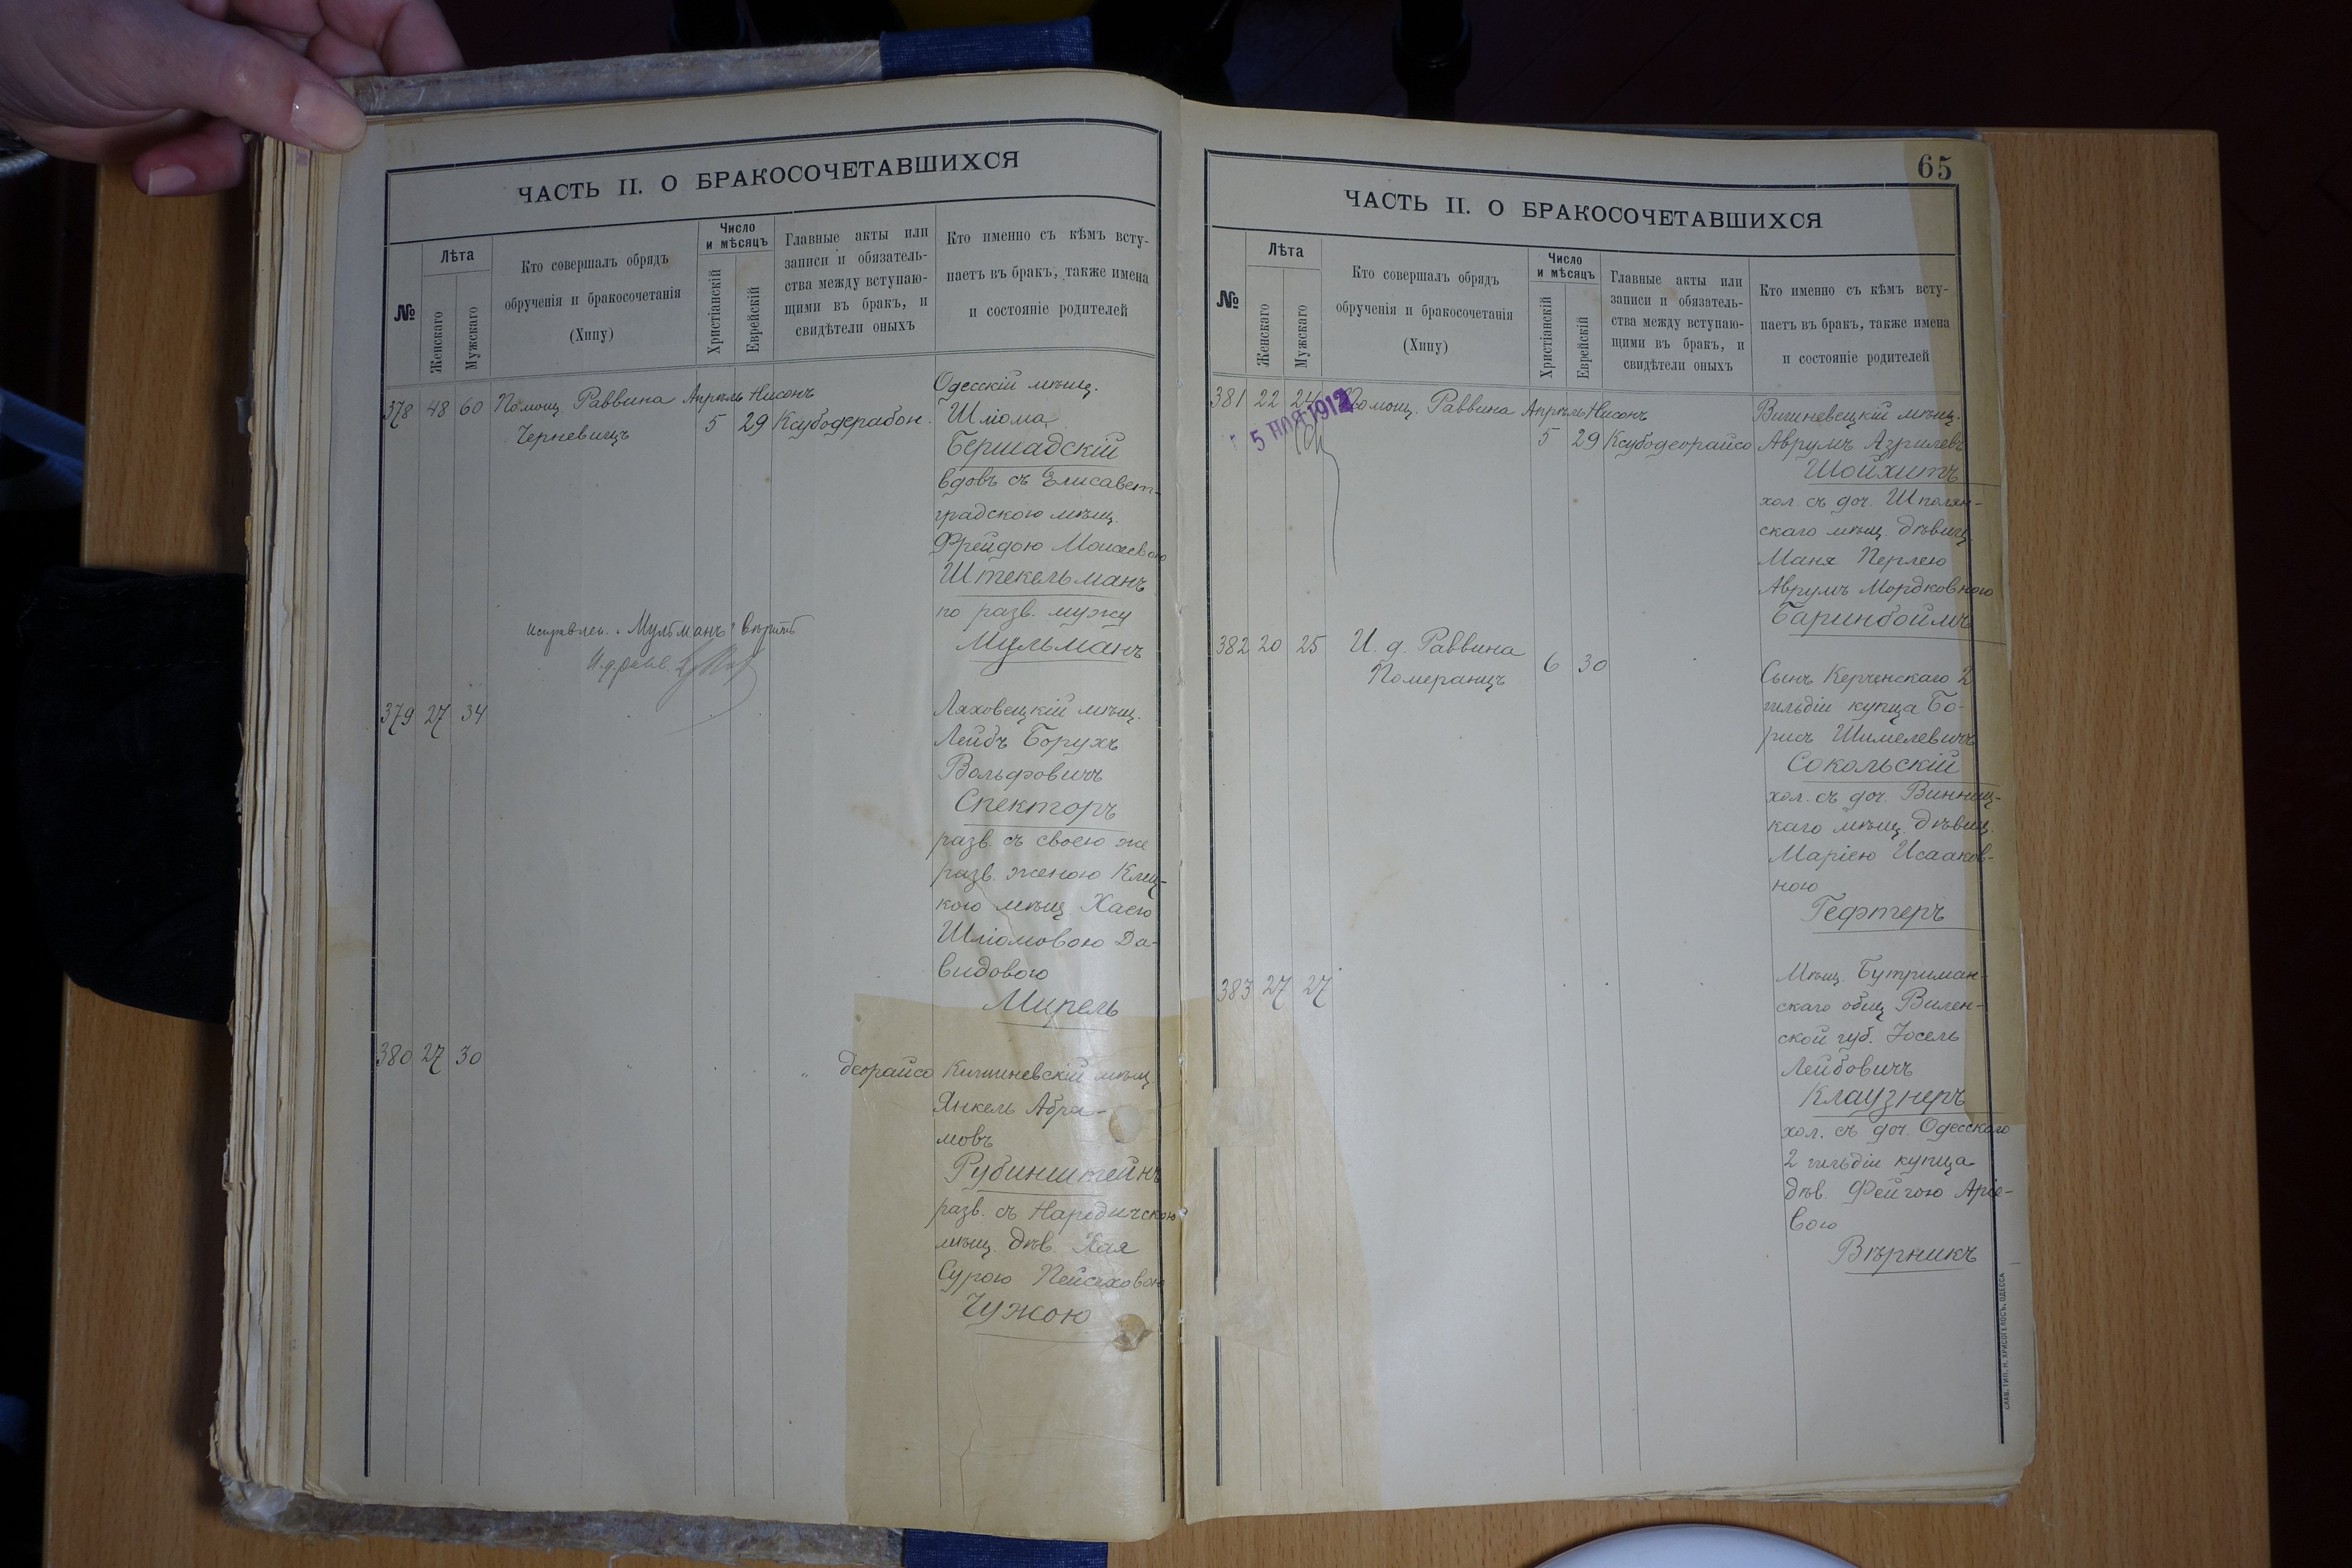 ЧАСТЬ II. О БРАКОСОЧЕТАВШИХСЯ
№
Лѣта
Женскаго
Мужскаго
Кто совершалъ обрядъ
обрученія и бракосочетанія
(Хипу)
Число
и мѣсяцъ
Христіанскій
Еврейскій
Главные акты или
записи и обязатель-
ства между вступаю-
щими въ бракъ, и
свидѣтели оныхъ
Кто именно съ кѣмъ всту-
паетъ въ бракъ, также имена
и состояніе родителей
378 48 60 Помощ. Раввина Апрѣль Нисонъ
Черневицъ 5 29 Ксубодерабон.
Одесскій мѣщ.
Шліома
Бершадскій
вдовъ съ Елисавет-
градскою мѣщ.
Фрейдою Моисеевою
Штекельманъ
по разв. мужу
Мульманъ
исправлен. "Мульманъ" вѣрить
И.д.равв.
379 27 34
Ляховецкій мѣщ.
Лейбъ Борухъ
Вольфовичъ
Спекторъ
разв. съ своею же
разв. женою Клец-
кою мѣщ. Хаею
Шліомовою Да-
видовою
Мирель
380 27 30 " деорайсо
Кишиневскій мѣщ.
Янкель Абра-
мовъ
Рубинштейнъ
разв. съ Народичскою
мѣщ. дѣв. Хая
Сурою Пейсаховою
Чужою
65
ЧАСТЬ II. О БРАКОСОЧЕТАВШИХСЯ
№
Лѣта
Женскаго
Мужскаго
Кто совершалъ обрядъ
обрученія и бракосочетанія
(Хипу)
Число
и мѣсяцъ
Христіанскій
Еврейскій
Главные акты или
записи и обязатель-
ства между вступаю-
щими въ бракъ, и
свидѣтели оныхъ
Кто именно съ кѣмъ всту-
паетъ въ бракъ, также имена
и состояніе родителей
381 22 24 Помощ. Раввина Апрѣль Нисонъ
5 1912
5 29 Ксубодеорайсо
Вишневецкій мѣщ.
Аврумъ Азрилевъ
Шойхитъ
хол. съ доч. Шполян-
скаго мѣщ. дѣвиц.
Маня Перлею
Аврумъ Мордковною
Баринбоймъ
382 20 25 И. д. Раввина
Померанцъ 6 30
Сынъ Керченскаго 2
гильдіи купца Бо-
рисъ Шимелевичъ
Сокольскій
хол. съ доч. Винниц-
каго мѣщ. дѣвиц.
Маріею Исааков-
ною
Гефтеръ
383 27 27
Мѣщ. Бутриман-
скаго общ. Вилен-
ской губ. Іосель
Лейбовичъ
Клаузнеръ
хол. съ доч. Одесскаго
2 гильдіи купца
дѣв. Фейгою Аріе-
вою
Вѣрникъ
СЛАВ. ТИП. Н. ХРИСОГЕЛОСЪ, ОДЕССА